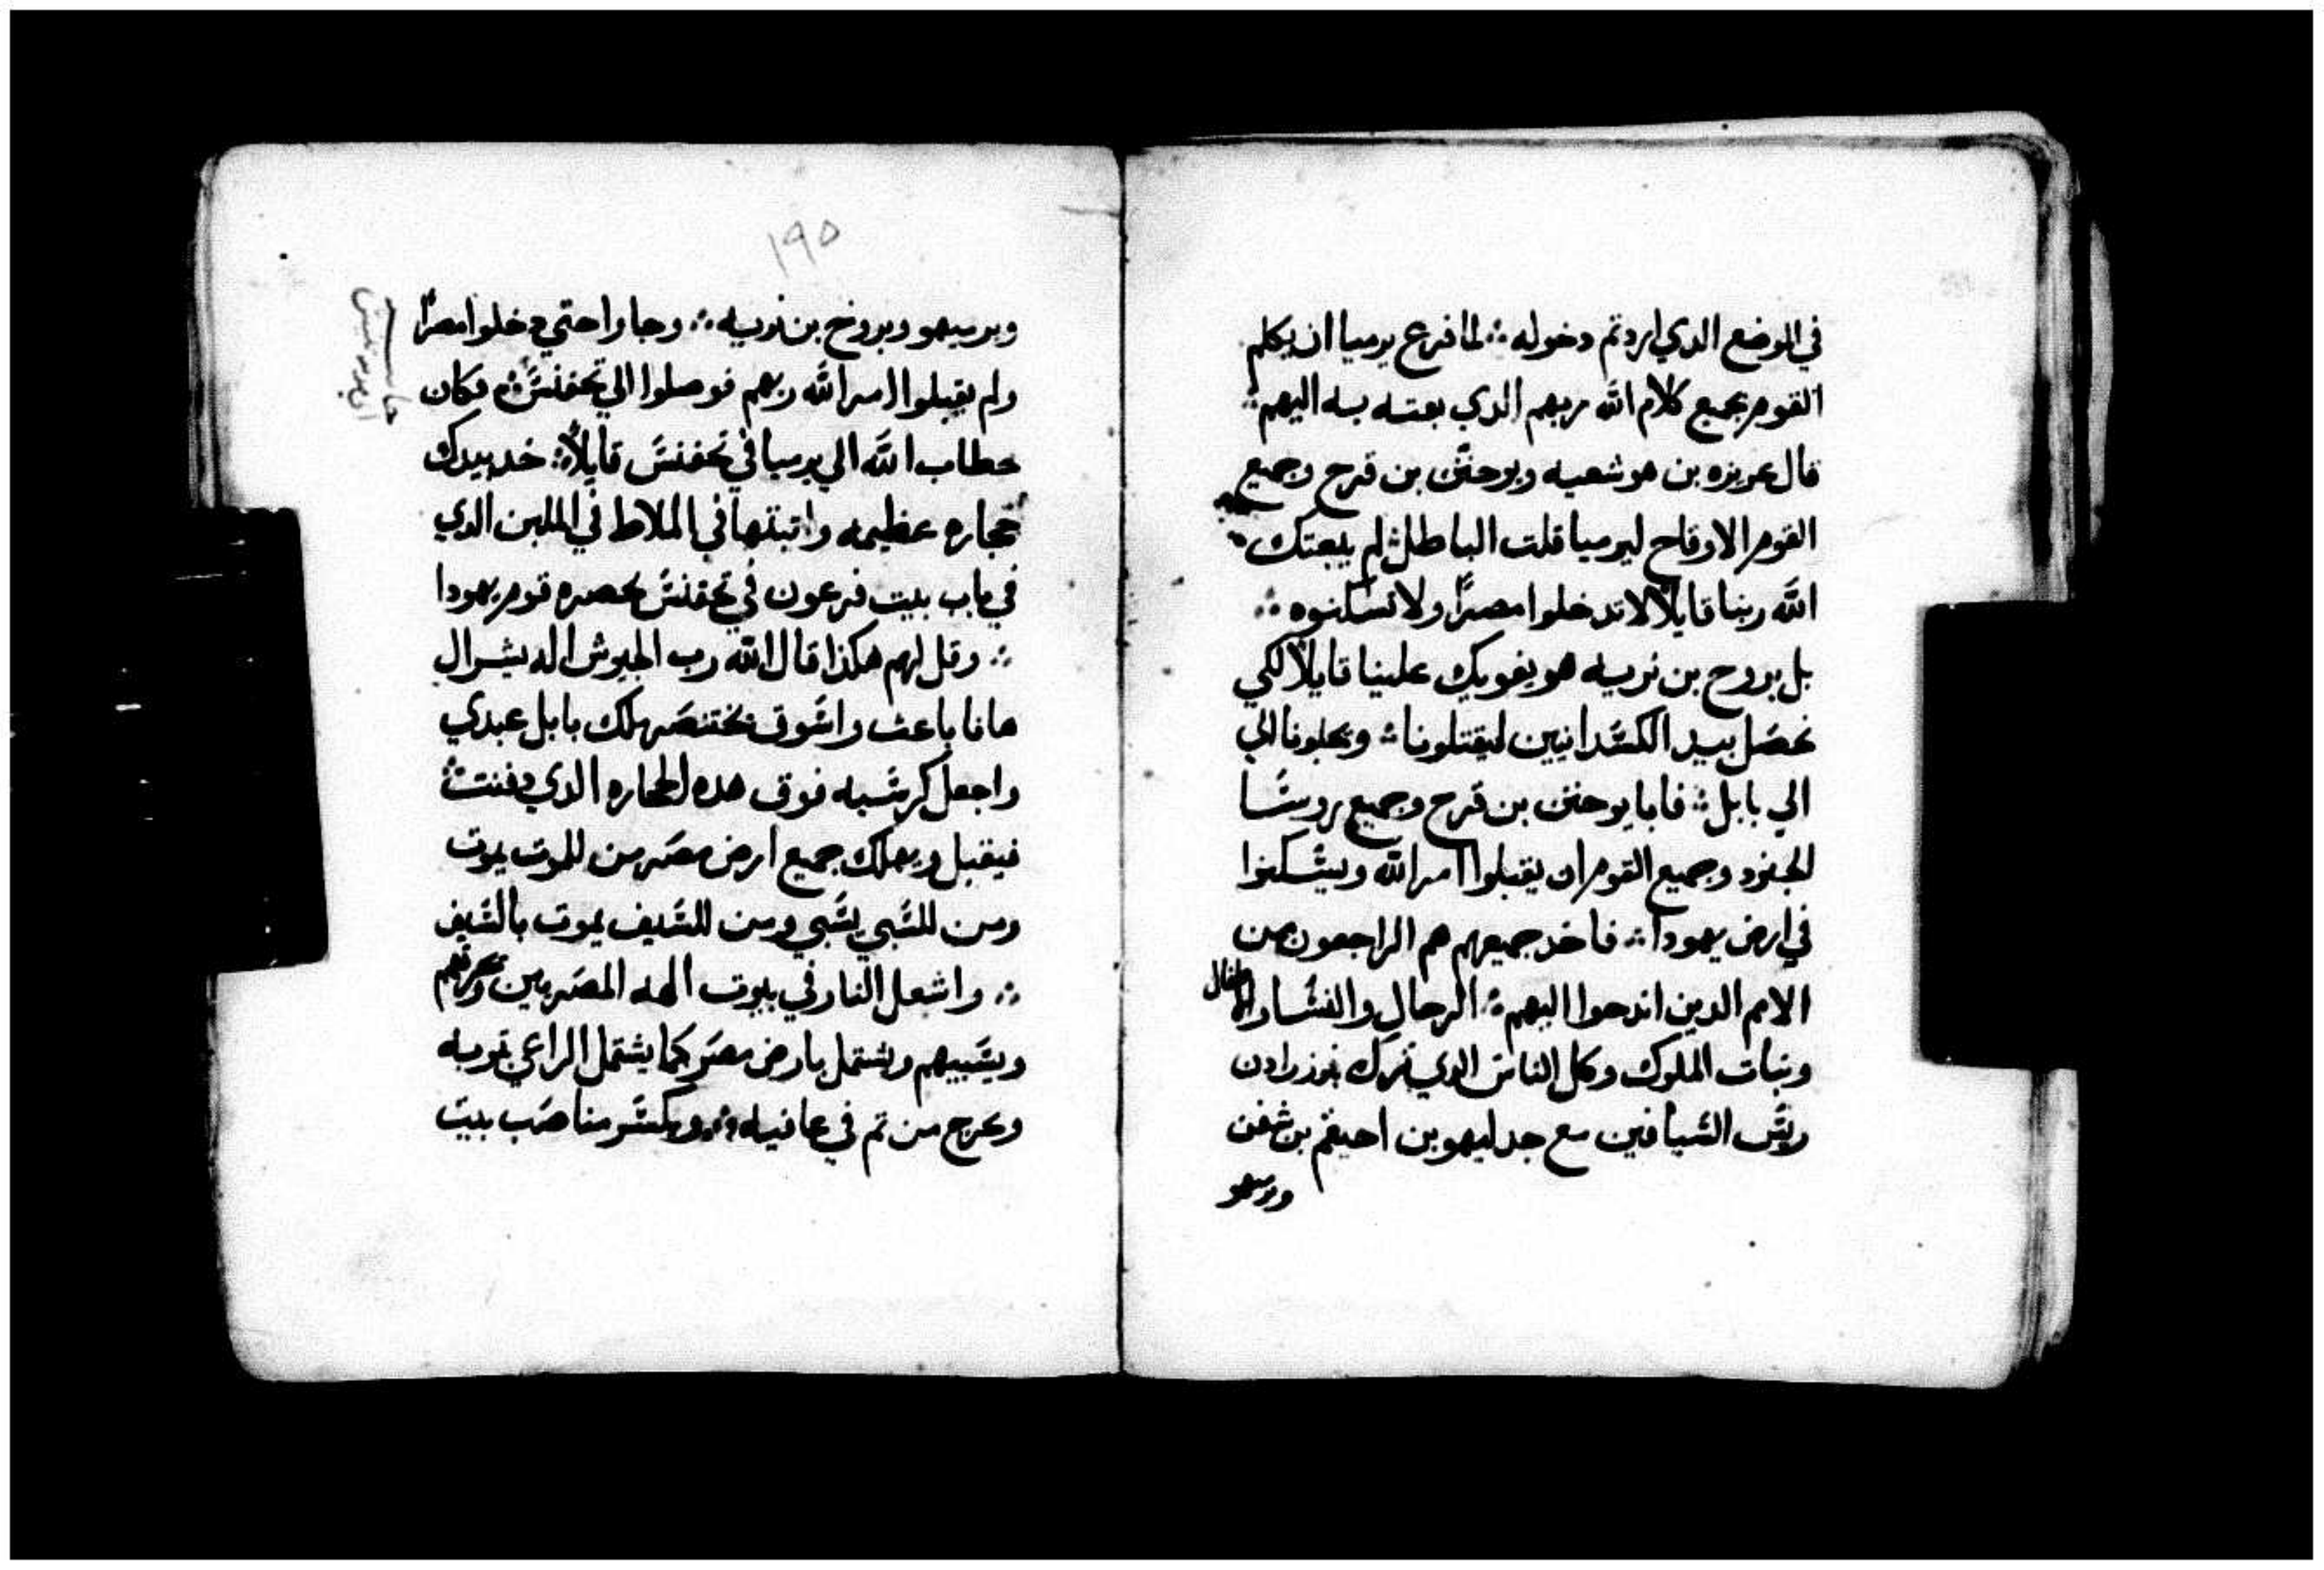 في الموضع الدي اردتم دخوله ؞ لما فرع يرميا ان يكلم
القوم بجميع كلام الله ربهم الدي بعته به اليهم ؞
قال عزيزه بن هوشعيه ويوحنن بن قرح وجميع
القوم الاوقاح ليرميا قلت الباطل ؞ لم يبعتك
الله ربنا قايلاً لا تدخلوا مصراً ولا تسكنوه ؞
بل بروح بن نريه هو يغويك علينا قايلاً لكي
نحصل بيد الكسدانيين ليقتلونا ؞ ويجلونا الي
الي بابل ؞ فابا يوحنن بن قرح وجميع روسا
الجنود وجميع القوم ان يقبلوا امر الله ويسكنوا
في ارض يهودا ؞ فاخد جميعهم هم الراجعون من
الامم الدين اندحوا اليهم ؞ الرجال والنسا والاطفال
وبنات الملوك وكل الناس الدي ترك نوزرادن
ريس السيافين مع جدليهو بن احيقم بن شفن
ويرميهو
١٩٥
ويرميهو وبروخ بن نريه ؞ وجاوا حتي دخلوا مصراً
ولم يقبلوا امر الله ربهم فوصلوا الي تحفنس ؞ فكان
خطاب الله الي يرميا في تحفنس قايلاً ؞ خد بيدك
حجاره عظيمه واتبتها في الملاط في الملبن الدي
في باب بيت فرعون في تحفنس بحصره قوم يهودا
؞ وقل لهم هكذا قال الله رب الجيوش اله يشرال
هانا باعث واسوق بختنصر ملك بابل عبدي
واجعل كرسيه فوق هده الحجاره الدي دفنت ؞
فيقبل ويهلك جميع ارض مصر من للموت يموت
ومن للسبي يسبي ومن للسيف يموت بالسيف
؞ واشعل النار في بيوت الهه المصريين ويحرقهم
ويسبيهم ويشتمل بارض مصر كما يشتمل الراعي توبه
ويخرج من تم في عافيه ؞ ويكسر مناصب بيت